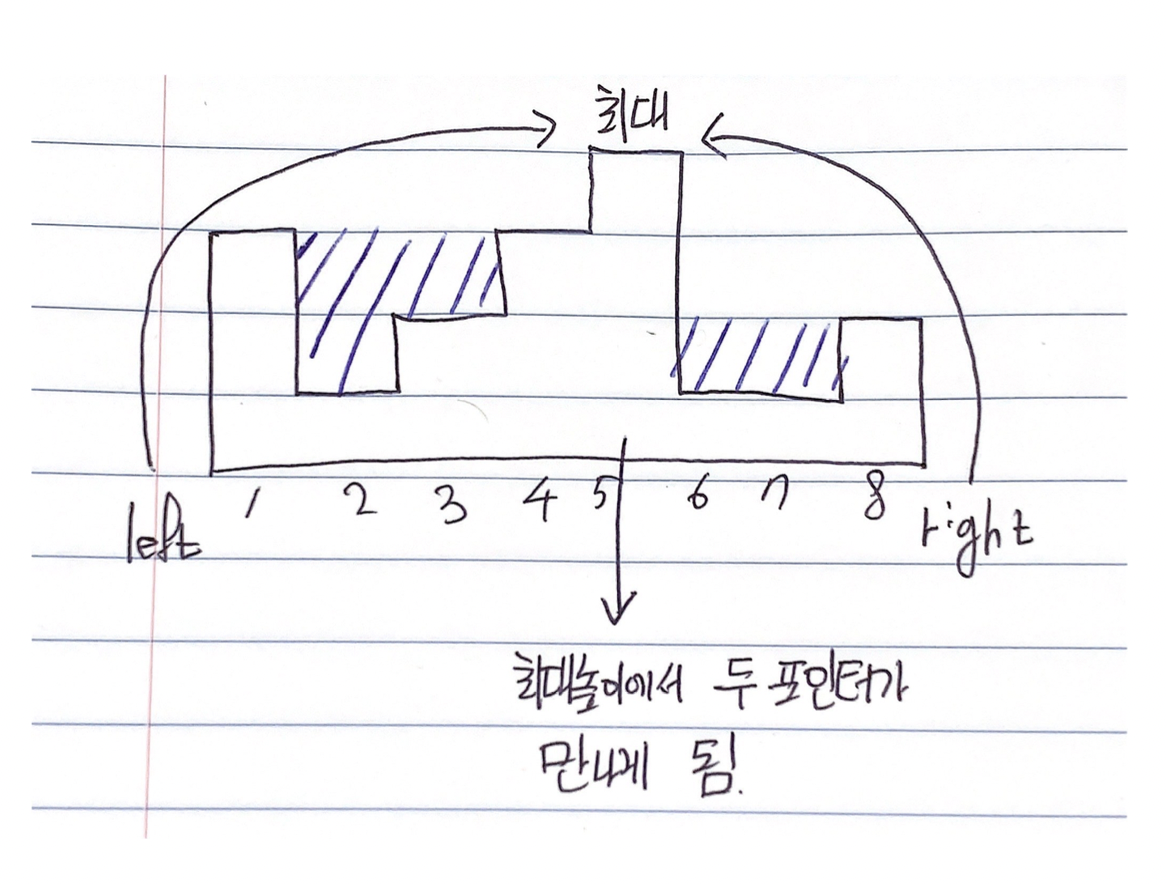 최대
1 2 3 4 5 6 7 8
left right
최대높이에서 두 포인터가
만나게 됨.